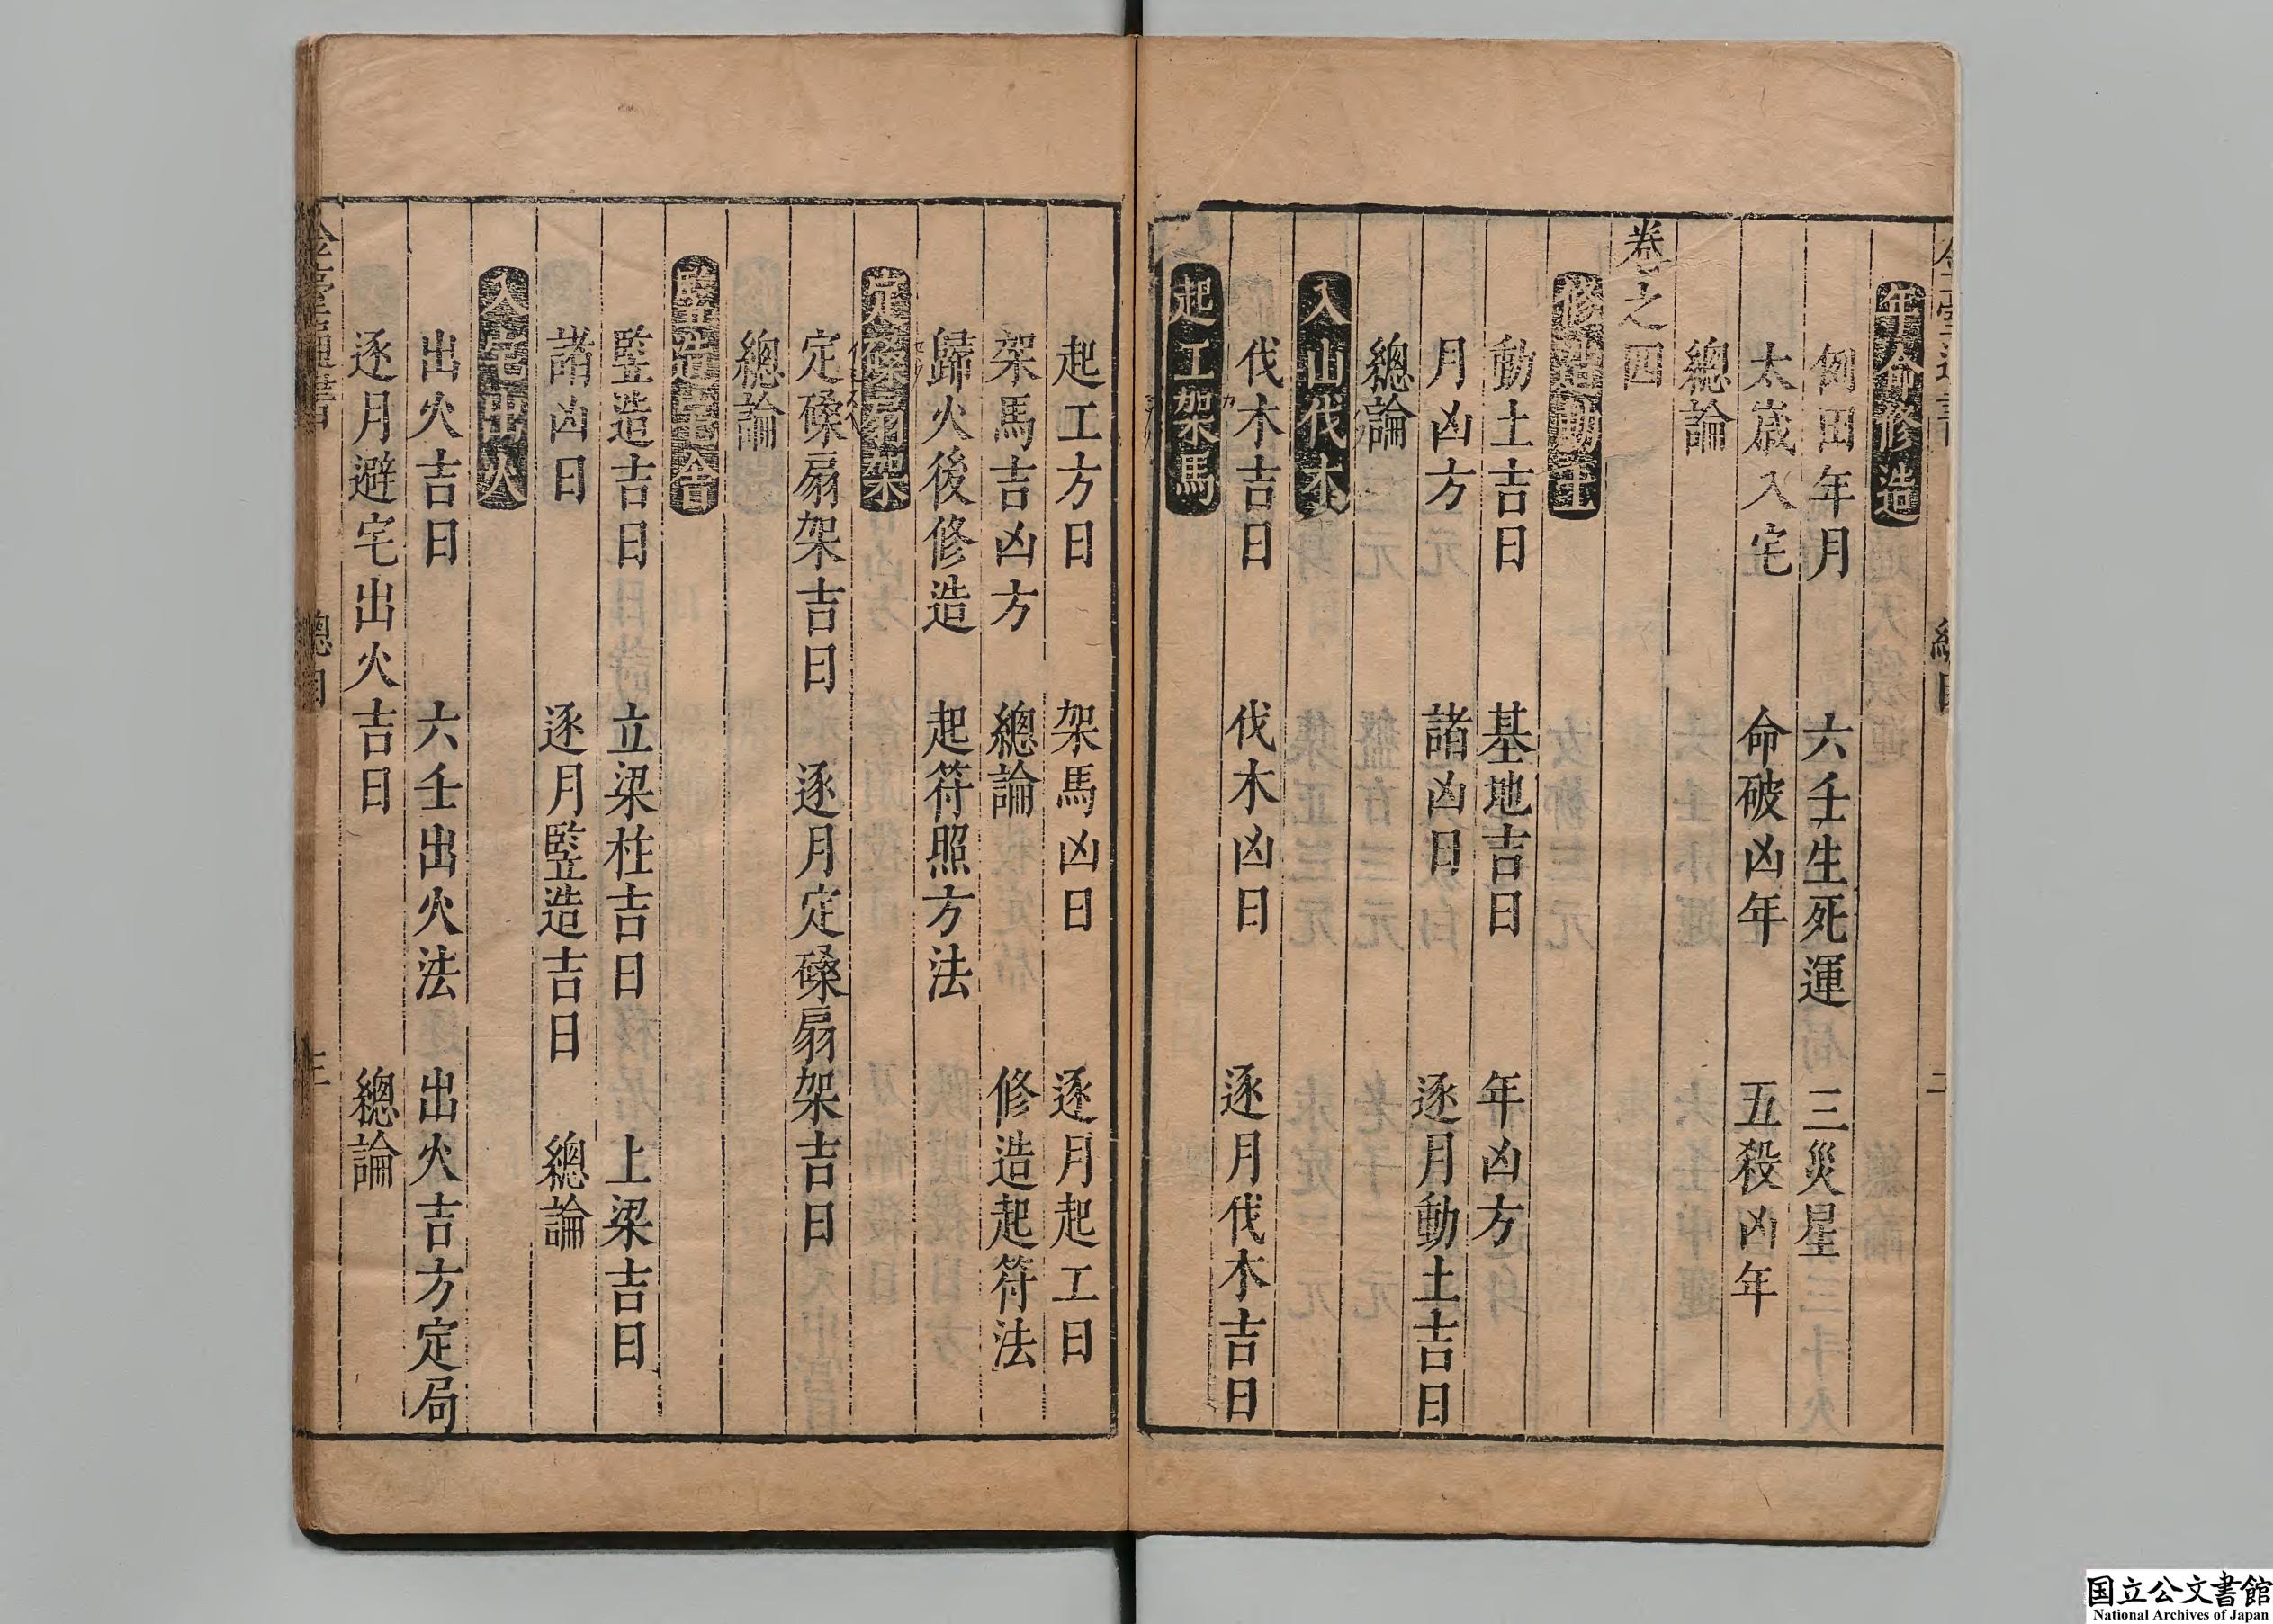 年命修造
例田年月　六壬生死運　三災星
太歲入宅　命破凶年　五殺凶年
總論
卷之四
修造動土
動土吉日　基地吉日　年凶方
月凶方　諸凶日　逐月動土吉日
總論
入山伐木
伐木吉日　伐木凶日　逐月伐木吉日
起工架馬
起工方日　架馬凶日　逐月起工日
架馬吉凶方　總論　修造起符法
歸火後修造　起符照方法
定磉扇架
定磉扇架吉日　逐月定磉扇架吉日
總論
豎造宅舍
豎造吉日　立梁柱吉日　上梁吉日
諸凶日　逐月豎造吉日　總論
入宅出火
出火吉日　六壬出火法　出火吉方定局
逐月避宅出火吉日　總論
国立公文書館
National Archives of Japan